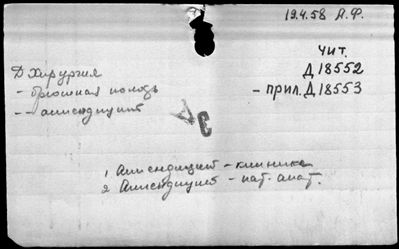 19.4.58 А.Ф.
чит.
Д 18552
- прил. Д 18553
Д Хирургия
- брюшная полость
- аппендицит
1 Аппендицит - клиника
2 Аппендицит - пат. анат.